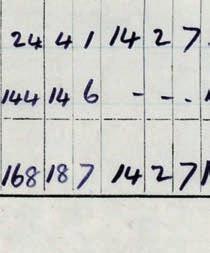 24 4 1 14 2 7
144 14 6 - - -
168 18 7 14 2 7